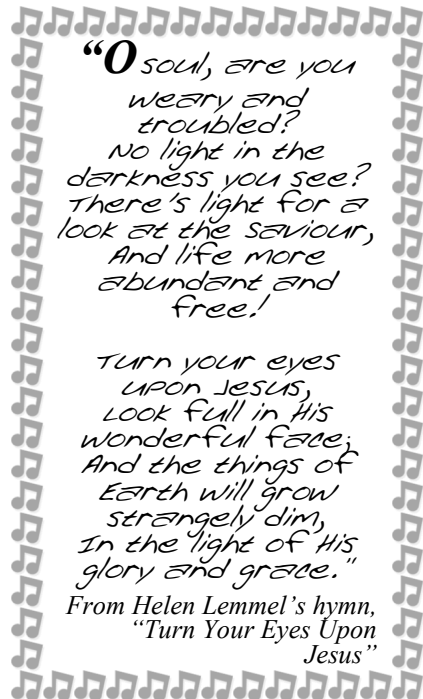 “O soul, are you
weary and
troubled?
No light in the
darkness you see?
There's light for a
look at the Saviour,
And life more
abundant and
free!
Turn your eyes
upon Jesus,
Look full in His
wonderful face;
And the things of
Earth will grow
strangely dim,
In the light of His
glory and grace."
From Helen Lemmel’s hymn,
“Turn Your Eyes Upon
Jesus”